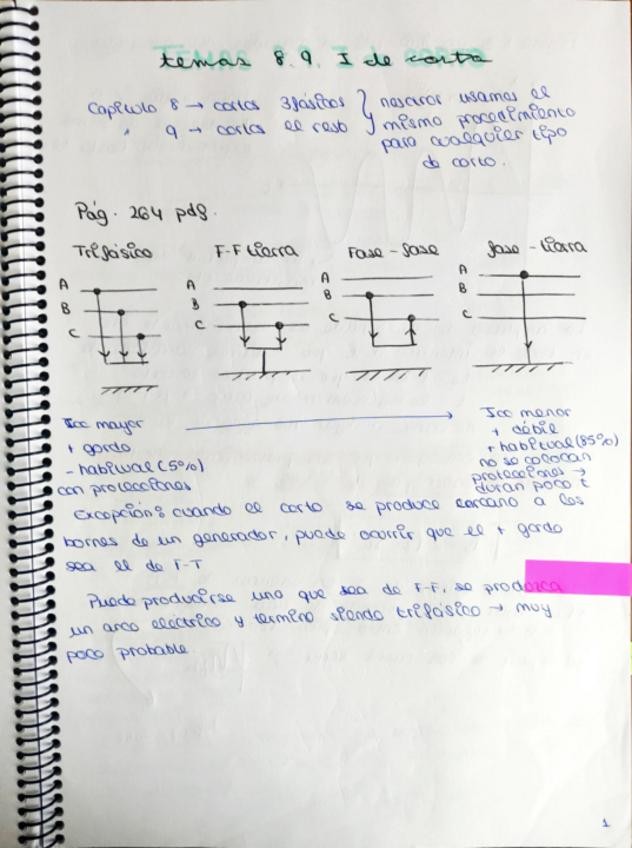 temas 8.9. I de corto
Capítulo 8 → cortos 3fásicos } nosotros usamos el
" 9 → cortos el resto mismo procedimiento
para cualquier tipo
de corto.
Pág. 264 pdf.
Trifásico F-F tierra Fase-fase fase-tierra
A A A A
B B B B
C C C C
Icc mayor → Icc menor
+ gordo + débil
- habitual (5%) + habitual (85%)
con protecciones no se colocan
protecciones →
duran poco t
Excepción: cuando el corto se produce cercano a los
bornes de un generador, puede ocurrir que el + gordo
sea el de F-T
Puede producirse uno que sea de F-F, se produzca
un arco eléctrico y termino siendo trifásico → muy
poco probable
1